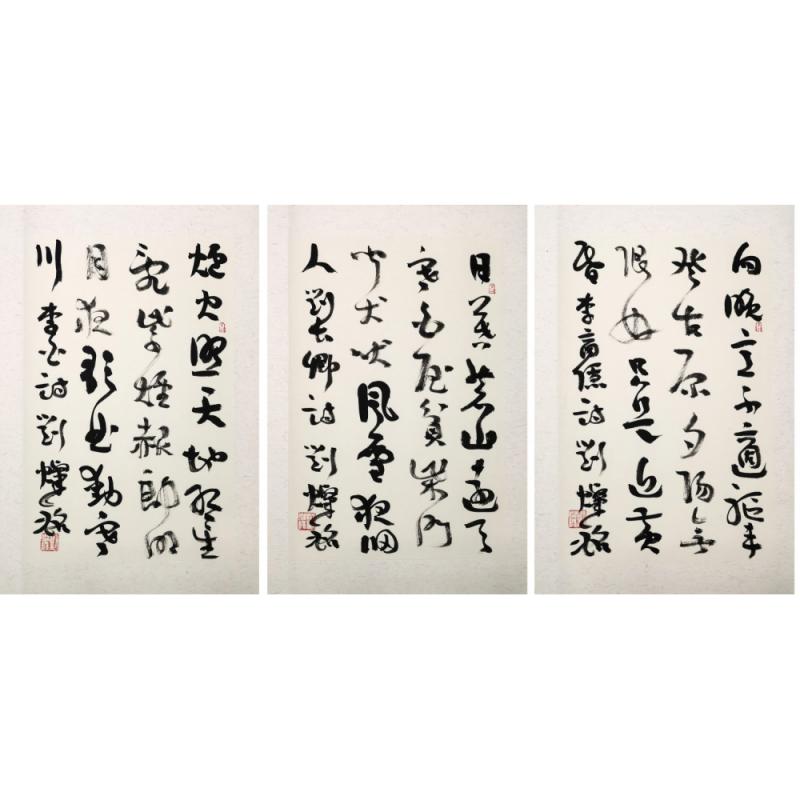 向晚意不適驅車
登古原夕陽無
限好只是近黃
昏李商隱詩劉燦銘
日暮蒼山遠天
寒白屋貧柴門
聞犬吠風雪夜歸
人劉長卿詩劉燦銘
炉火照天地紅星
亂紫煙赧郎明
月夜歌曲動寒
川李白詩劉燦銘